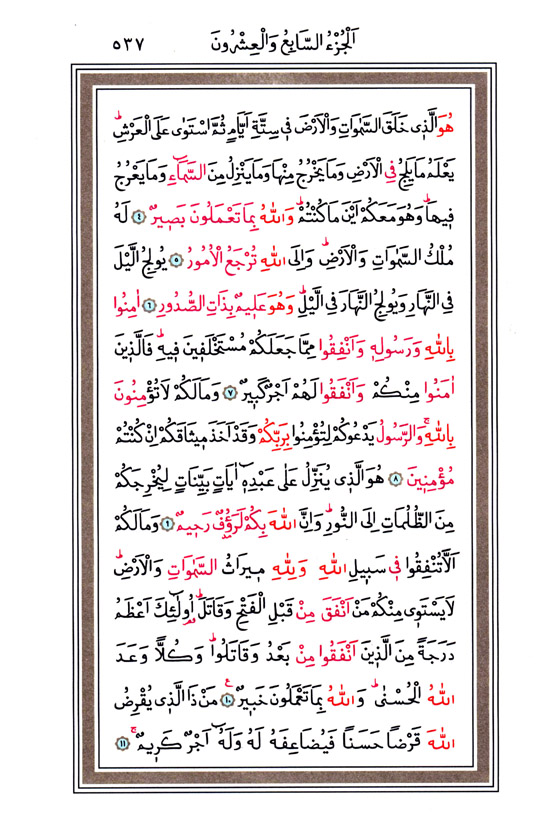 اَلْجُزْءُ السَّابِعُ وَالْعِشْرُونَ ٥٣٧
هُوَ الَّذٖى خَلَقَ السَّمٰوَاتِ وَالْاَرْضَ فٖى سِتَّةِ اَيَّامٍ ثُمَّ اسْتَوٰى عَلَى الْعَرْشِؕ
يَعْلَمُ مَا يَلِجُ فِى الْاَرْضِ وَمَا يَخْرُجُ مِنْهَا وَمَا يَنْزِلُ مِنَ السَّمَٓاءِ وَمَا يَعْرُجُ
فٖيهَاؕ وَهُوَ مَعَكُمْ اَيْنَ مَا كُنْتُمْؕ وَاللّٰهُ بِمَا تَعْمَلُونَ بَصٖيرٌ ﴿٤﴾ لَهُ
مُلْكُ السَّمٰوَاتِ وَالْاَرْضِؕ وَاِلَى اللّٰهِ تُرْجَعُ الْاُمُورُ ﴿٥﴾ يُولِجُ الَّيْلَ
فِى النَّهَارِ وَيُولِجُ النَّهَارَ فِى الَّيْلِؕ وَهُوَ عَلٖيمٌ بِذَاتِ الصُّدُورِ ﴿٦﴾ اٰمِنُوا
بِاللّٰهِ وَرَسُولِهٖ وَاَنْفِقُوا مِمَّا جَعَلَكُمْ مُسْتَخْلَفٖينَ فٖيهِؕ فَالَّذٖينَ
اٰمَنُوا مِنْكُمْ وَاَنْفَقُوا لَهُمْ اَجْرٌ كَبٖيرٌ ﴿٧﴾ وَمَا لَكُمْ لَا تُؤْمِنُونَ
بِاللّٰهِۚ وَالرَّسُولُ يَدْعُوكُمْ لِتُؤْمِنُوا بِرَبِّكُمْ وَقَدْ اَخَذَ مٖيثَاقَكُمْ اِنْ كُنْتُمْ
مُؤْمِنٖينَ ﴿٨﴾ هُوَ الَّذٖى يُنَزِّلُ عَلٰى عَبْدِهٖٓ اٰيَاتٍ بَيِّنَاتٍ لِيُخْرِجَكُمْ
مِنَ الظُّلُمَاتِ اِلَى النُّورِؕ وَاِنَّ اللّٰهَ بِكُمْ لَرَؤُفٌ رَحٖيمٌ ﴿٩﴾ وَمَا لَكُمْ
اَلَّا تُنْفِقُوا فٖى سَبٖيلِ اللّٰهِ وَلِلّٰهِ مٖيرَاثُ السَّمٰوَاتِ وَالْاَرْضِؕ
لَا يَسْتَوٖى مِنْكُمْ مَنْ اَنْفَقَ مِنْ قَبْلِ الْفَتْحِ وَقَاتَلَؕ اُو۬لٰٓئِكَ اَعْظَمُ
دَرَجَةً مِنَ الَّذٖينَ اَنْفَقُوا مِنْ بَعْدُ وَقَاتَلُواؕ وَكُلًّا وَعَدَ
اللّٰهُ الْحُسْنٰىؕ وَاللّٰهُ بِمَا تَعْمَلُونَ خَبٖيرٌࣖ ﴿١٠﴾ مَنْ ذَا الَّذٖى يُقْرِضُ
اللّٰهَ قَرْضًا حَسَنًا فَيُضَاعِفَهُ لَهُ وَلَهُٓ اَجْرٌ كَرٖيمٌۚ ﴿١١﴾